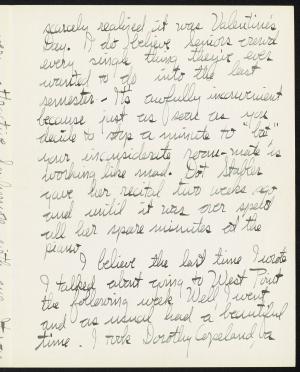 scarcely realized it was Valentine's
Day. I do believe seniors crowd
every single thing they've ever
wanted to do into the last
semester - It's awfully inconvenient
because just as soon as you
decide to stop a minute to "bat"
your inconsiderate room-mate is
working like mad. Dot
gave her recital two weeks ago
and until it was over spent
all her spare minutes at the
piano.
I believe the last time I wrote
I talked about going to West Point
the following week. Well I went
and as usual had a beautiful
time. I took Dorothy Copeland